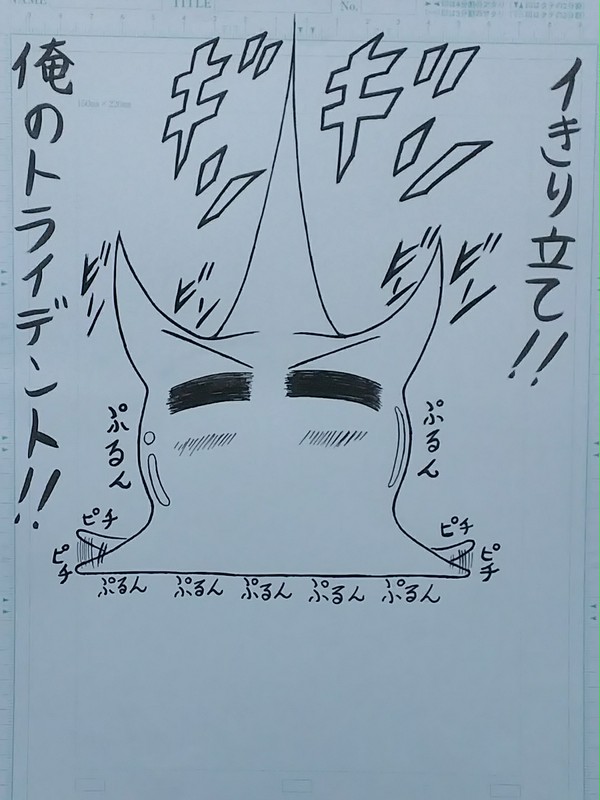 NAME
TITLE
No.
イきり立て!!
俺のトライデント!!
ギンッ
ギンッ
ビーン
ビーン
ビーン
ビーン
ぷるん
ぷるん
ピチ
ピチ
ピチ
ピチ
ぷるん ぷるん ぷるん ぷるん ぷるん